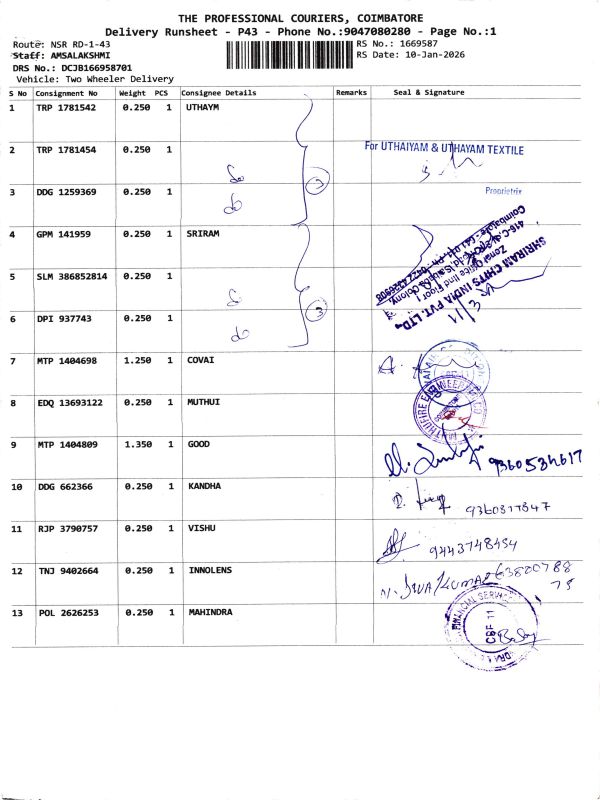 THE PROFESSIONAL COURIERS, COIMBATORE
Delivery Runsheet - P43 - Phone No.:9047080280 - Page No.:1
Route: NSR RD-1-43 RS No.: 1669587
Staff: AMSALAKSHMI RS Date: 10-Jan-2026
DRS No.: DCJB166958701
Vehicle: Two Wheeler Delivery
S No Consignment No Weight PCS Consignee Details Remarks Seal & Signature
1 TRP 1781542 0.250 1 UTHAYM
2 TRP 1781454 0.250 1 For UTHAIYAM & UTHAYAM TEXTILE
do
3 DDG 1259369 0.250 1 3 Proprietrix
do
4 GPM 141959 0.250 1 SRIRAM
SHRIRAM CHITS INDIA PVT. LTD.
Zonal Office IInd Floor
5 SLM 386852814 0.250 1
do
6 DPI 937743 0.250 1 3
do
7 MTP 1404698 1.250 1 COVAI
8 EDQ 13693122 0.250 1 MUTHUI
9 MTP 1404809 1.350 1 GOOD
9360534617
10 DDG 662366 0.250 1 KANDHA
9360817847
11 RJP 3790757 0.250 1 VISHU
9443748454
12 TNJ 9402664 0.250 1 INNOLENS
N. SIVA KUMAR 63800788
75
13 POL 2626253 0.250 1 MAHINDRA
FINANCIAL SERVICES
CBF 11